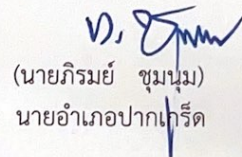 (นายภิรมย์ ชุมนุม)
นายอำเภอปากเกร็ด